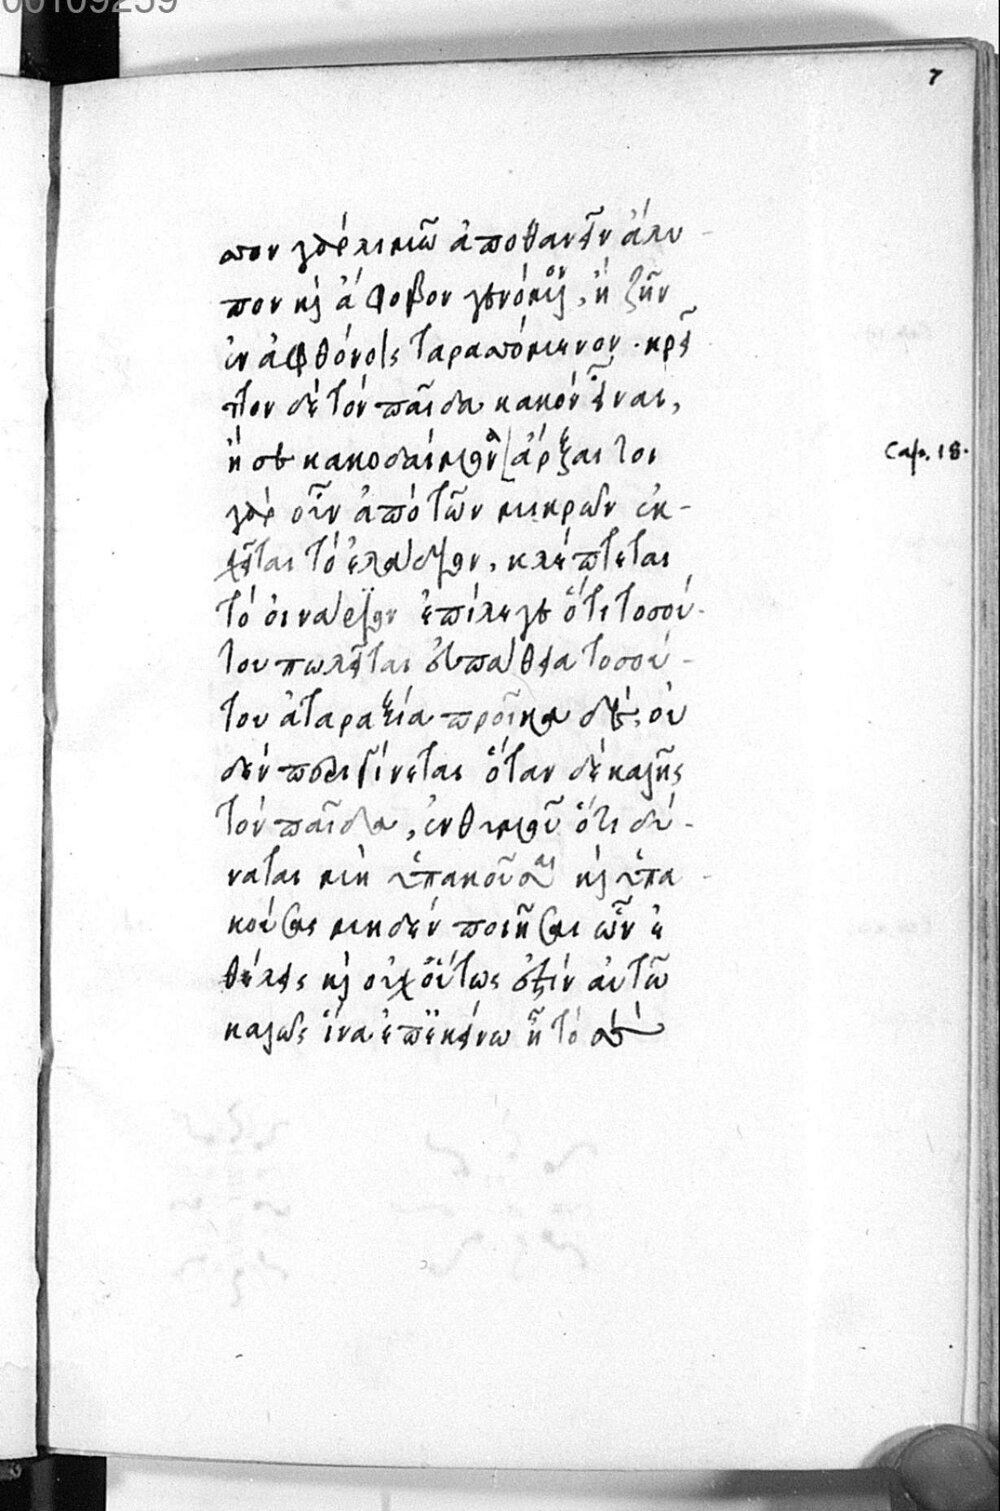 00109259
7
πον γὰρ λιμῶ ἀποθανεῖν ἄλυ-
πον κὶ ἄφοβον γενόμεν, ἢ ζῆν
ἐν ἀφθόνοις ταρασσόμενον. κρεῖ
τον δὲ τὸν παῖδα κακὸν εἶναι,
ἢ σὲ κακοδαίμονα ἄρξαι τοι
γὰρ οὖν ἀπὸ τῶν μικρῶν ἐκ-
χεῖται τὸ ἐλάδιον, κλέπτεται
τὸ οἰνάριον ἐπίλεγε ὅτι τοσού-
του πωλεῖται ἀπάθεια τοσού-
του ἀταραξία προῖκα δὲ, οὐ
δὲν περιγίνεται ὅταν δὲ καλῆς
τὸν παῖδα, ἐνθυμοῦ ὅτι δύ-
ναται μὴ ὑπακοῦσαι κὶ ὑπα-
κούσας μηδὲν ποιῆσαι ὧν ἐ
θέλεις κὶ οὐχ οὕτως ἐστὶν αὐτῶ
καλῶς ἵνα ἐπ ἐκείνω ἦ τὸ σὲ
Cap. 18.